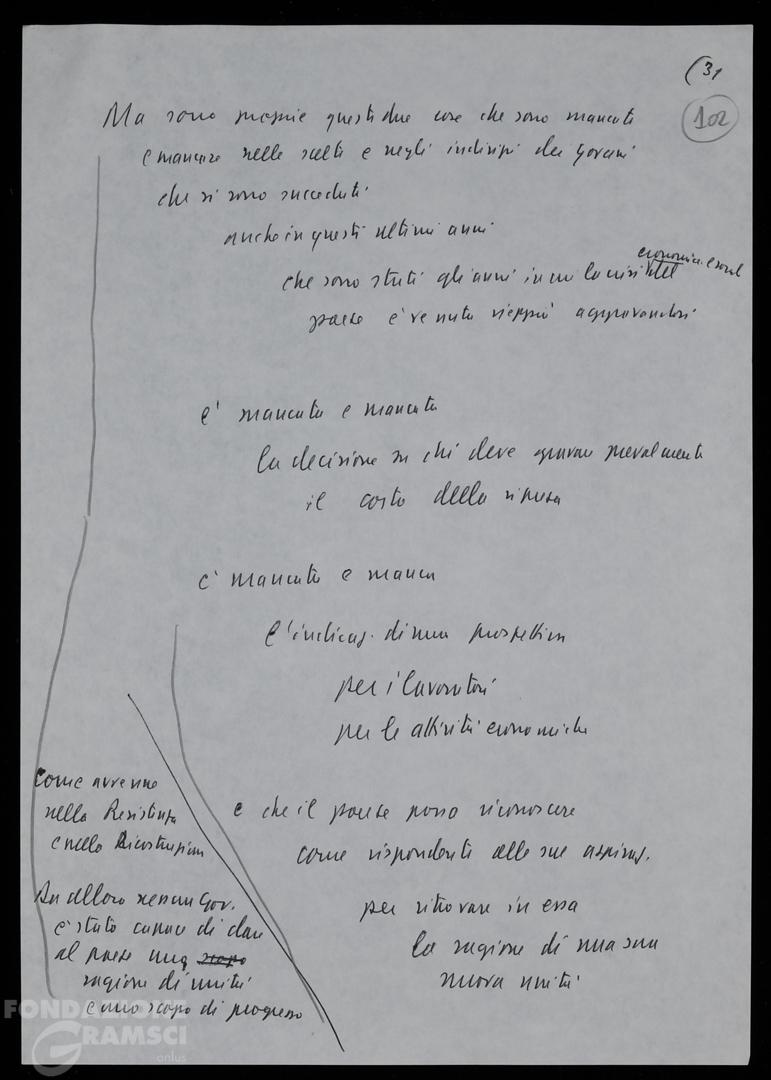 (31
102
Ma sono proprio questi due cose che sono mancate
e mancano nelle scelte e negli indirizzi dei Governi
che si sono succeduti
anche in questi ultimi anni
che sono stati gli anni in cui la crisi del
economica e social
paese è venuta vieppiù aggravandosi
è mancata e mancata
la decisione su chi deve gravare prevalmente
il costo della ripresa
è mancata e manca
l'indicaz. di una prospettiva
per i lavoratori
per le attività economiche
e che il paese possa riconoscere
come rispondente alle sue aspiraz.
per ritrovare in essa
la ragione di una sua
nuova unità
Come avvenne
nella Resistenza
e nella Ricostruzione
Da allora nessun Gov.
è stato capace di dare
al paese una scopo
ragione di unità
e uno scopo di progresso
FONDAZIONE
GRAMSCI
onlus